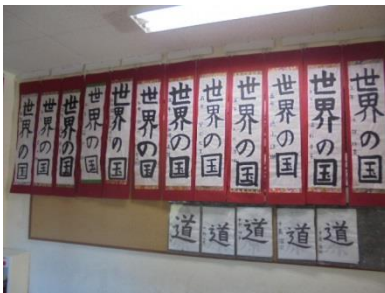 世界の国
世界の国
世界の国
世界の国
世界の国
世界の国
世界の国
世界の国
世界の国
世界の国
世界の国
世界の国
道
道
道
道
道